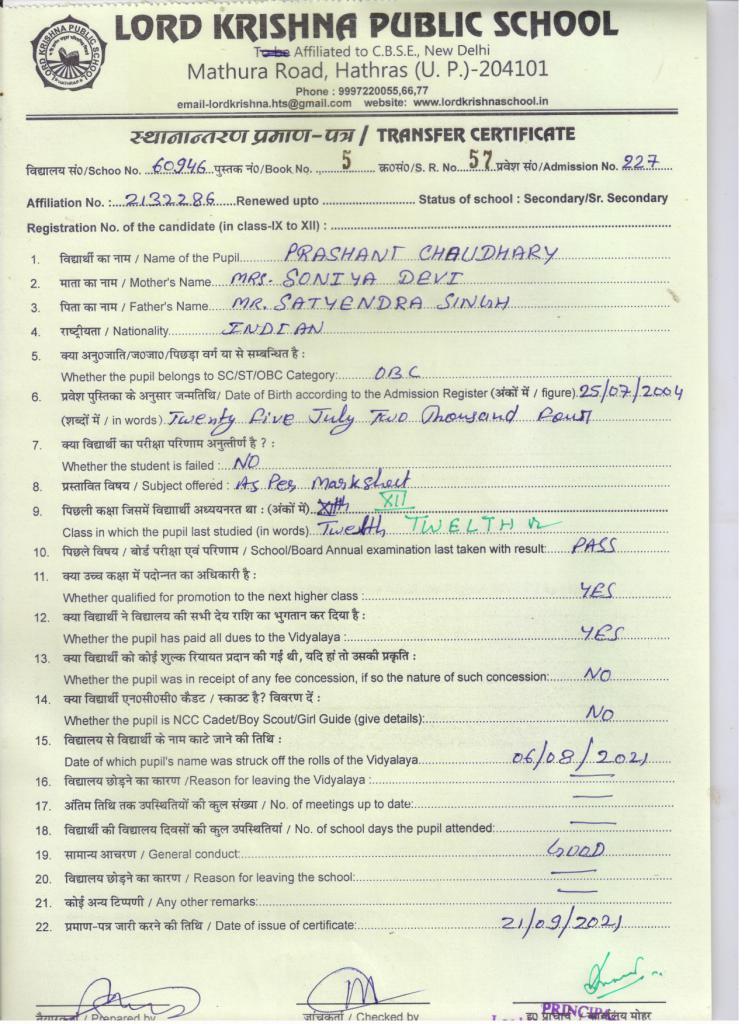 LORD KRISHNA PUBLIC SCHOOL
LORD KRISHNA PUBLIC SCHOOL
Affiliated to C.B.S.E., New Delhi
Mathura Road, Hathras (U. P.)-204101
Phone : 9997220055,66,77
email-lordkrishna.hts@gmail.com website: www.lordkrishnaschool.in
स्थानान्तरण प्रमाण-पत्र / TRANSFER CERTIFICATE
विद्यालय सं0/Schoo No. 60946 पुस्तक नं0/Book No. 5 क्र0सं0/S. R. No. 57 प्रवेश सं0/Admission No. 227
Affiliation No. : 2132286 Renewed upto Status of school : Secondary/Sr. Secondary
Registration No. of the candidate (in class-IX to XII) :
1. विद्यार्थी का नाम / Name of the Pupil PRASHANT CHAUDHARY
2. माता का नाम / Mother's Name MRS. SONIYA DEVI
3. पिता का नाम / Father's Name MR. SATYENDRA SINGH
4. राष्ट्रीयता / Nationality INDIAN
5. क्या अनु0जाति/ज0जा0/पिछड़ा वर्ग या से सम्बन्धित है :
Whether the pupil belongs to SC/ST/OBC Category: OBC
6. प्रवेश पुस्तिका के अनुसार जन्मतिथि/ Date of Birth according to the Admission Register (अंकों में / figure) 25/07/2004
(शब्दों में / in words) Twenty five July Two Thousand four
7. क्या विद्यार्थी का परीक्षा परिणाम अनुत्तीर्ण है ? :
Whether the student is failed : NO
8. प्रस्तावित विषय / Subject offered : As Per Marksheet
9. पिछली कक्षा जिसमें विद्यार्थी अध्ययनरत था : (अंकों में) XII
Class in which the pupil last studied (in words) Twelth TWELTH
10. पिछले विषय / बोर्ड परीक्षा एवं परिणाम / School/Board Annual examination last taken with result: PASS
11. क्या उच्च कक्षा में पदोन्नत का अधिकारी है :
Whether qualified for promotion to the next higher class : YES
12. क्या विद्यार्थी ने विद्यालय की सभी देय राशि का भुगतान कर दिया है :
Whether the pupil has paid all dues to the Vidyalaya : YES
13. क्या विद्यार्थी को कोई शुल्क रियायत प्रदान की गई थी, यदि हां तो उसकी प्रकृति :
Whether the pupil was in receipt of any fee concession, if so the nature of such concession: NO
14. क्या विद्यार्थी एन0सी0सी0 कैडट / स्काउट है? विवरण दें :
Whether the pupil is NCC Cadet/Boy Scout/Girl Guide (give details): NO
15. विद्यालय से विद्यार्थी के नाम काटे जाने की तिथि :
Date of which pupil's name was struck off the rolls of the Vidyalaya 06/08/2021
16. विद्यालय छोड़ने का कारण /Reason for leaving the Vidyalaya :
17. अंतिम तिथि तक उपस्थितियों की कुल संख्या / No. of meetings up to date:
18. विद्यार्थी की विद्यालय दिवसों की कुल उपस्थितियां / No. of school days the pupil attended:
19. सामान्य आचरण / General conduct: GOOD
20. विद्यालय छोड़ने का कारण / Reason for leaving the school:
21. कोई अन्य टिप्पणी / Any other remarks:
22. प्रमाण-पत्र जारी करने की तिथि / Date of issue of certificate: 21/09/2021
/ Prepared by जांचकर्ता / Checked by मोहर